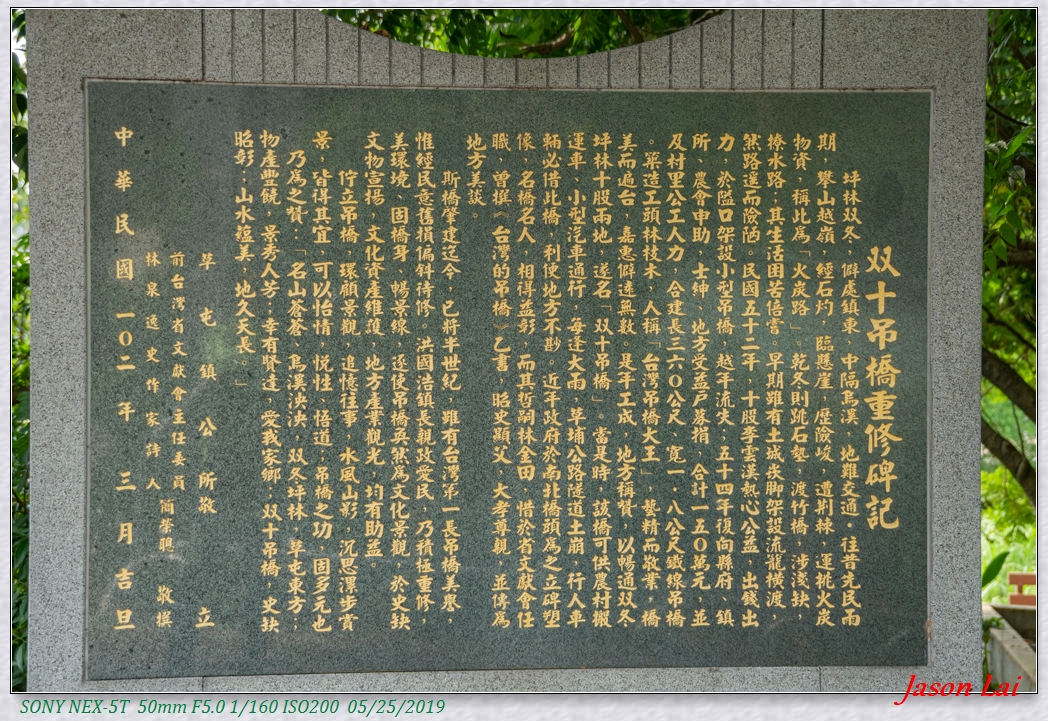 双十吊橋重修碑記
坪林双冬，僻處鎮東，中隔烏溪，地難交通。往昔先民雨
期，攀山越嶺，經石灼，臨懸崖，歷險峻，遭荆棘，運挑火炭
物資，稱此為「火炭路」。乾冬則跳石墊，渡竹橋，涉淺缺，
撩水路；其生活困苦倍嘗。早期雖有土城崁脚架設流籠橫渡，
然路遥而險陋。民國五十二年，十股李雲漢熱心公益，出錢出
力，於隘口架設小型吊橋，越年流失；五十四年復向縣府、鎮
所、農會申助，士紳、地方受益戶募捐，合計一五０萬元，並
及村里公工人力，合建長三六０公尺，寬一．八公尺鐵線吊橋
。築造工頭林枝木，人稱「台灣吊橋大王」，藝精而敬業，橋
美而遍台，嘉惠僻逑無數。是年工成，地方稱贊，以暢通双冬
坪林十股兩地，遂名「双十吊橋」。當是時，該橋可供農村搬
運車、小型汽車通行，每逢大雨，草埔公路隧道土崩，行人車
輛必借此橋，利使地方不尠，近年政府於南北橋頭為之立碑塑
像，名橋名人，相得益彰，而其哲嗣林金田，惜於省文獻會任
職，曾撰《台灣的吊橋》乙書，昭史顯父，大孝尊親，並傳為
地方美談。
斯橋肇建迄今，已將半世紀，雖有台灣第一長吊橋美譽，
惟經民意舊損偏斜待修。洪國浩鎮長親政愛民，乃積極重修，
美環境、固橋身、暢景線，逐使吊橋奐然為文化景觀，於史缺
文物宣揚，文化資產維護，地方產業觀光，均有助益。
佇立吊橋，環顧景觀，追憶往事，水風山影，沉思漂步賞
景，皆得其宜，可以怡情，悅性，悟道；吊橋之功，固多元也
乃為之贊：「名山蒼蒼，烏溪泱泱，双冬坪林，草屯東方；
物產豐饒，景秀人芳；幸有賢達，愛我家鄉；双十吊橋，史缺
昭彰；山水蘊美，地久天長。」
草屯鎮公所敬立
前台灣省文獻會主任委員
林泉逸史作家詩人 簡榮聰 敬撰
中華民國一０二年三月吉旦
Jason Lai
SONY NEX-5T 50mm F5.0 1/160 ISO200 05/25/2019